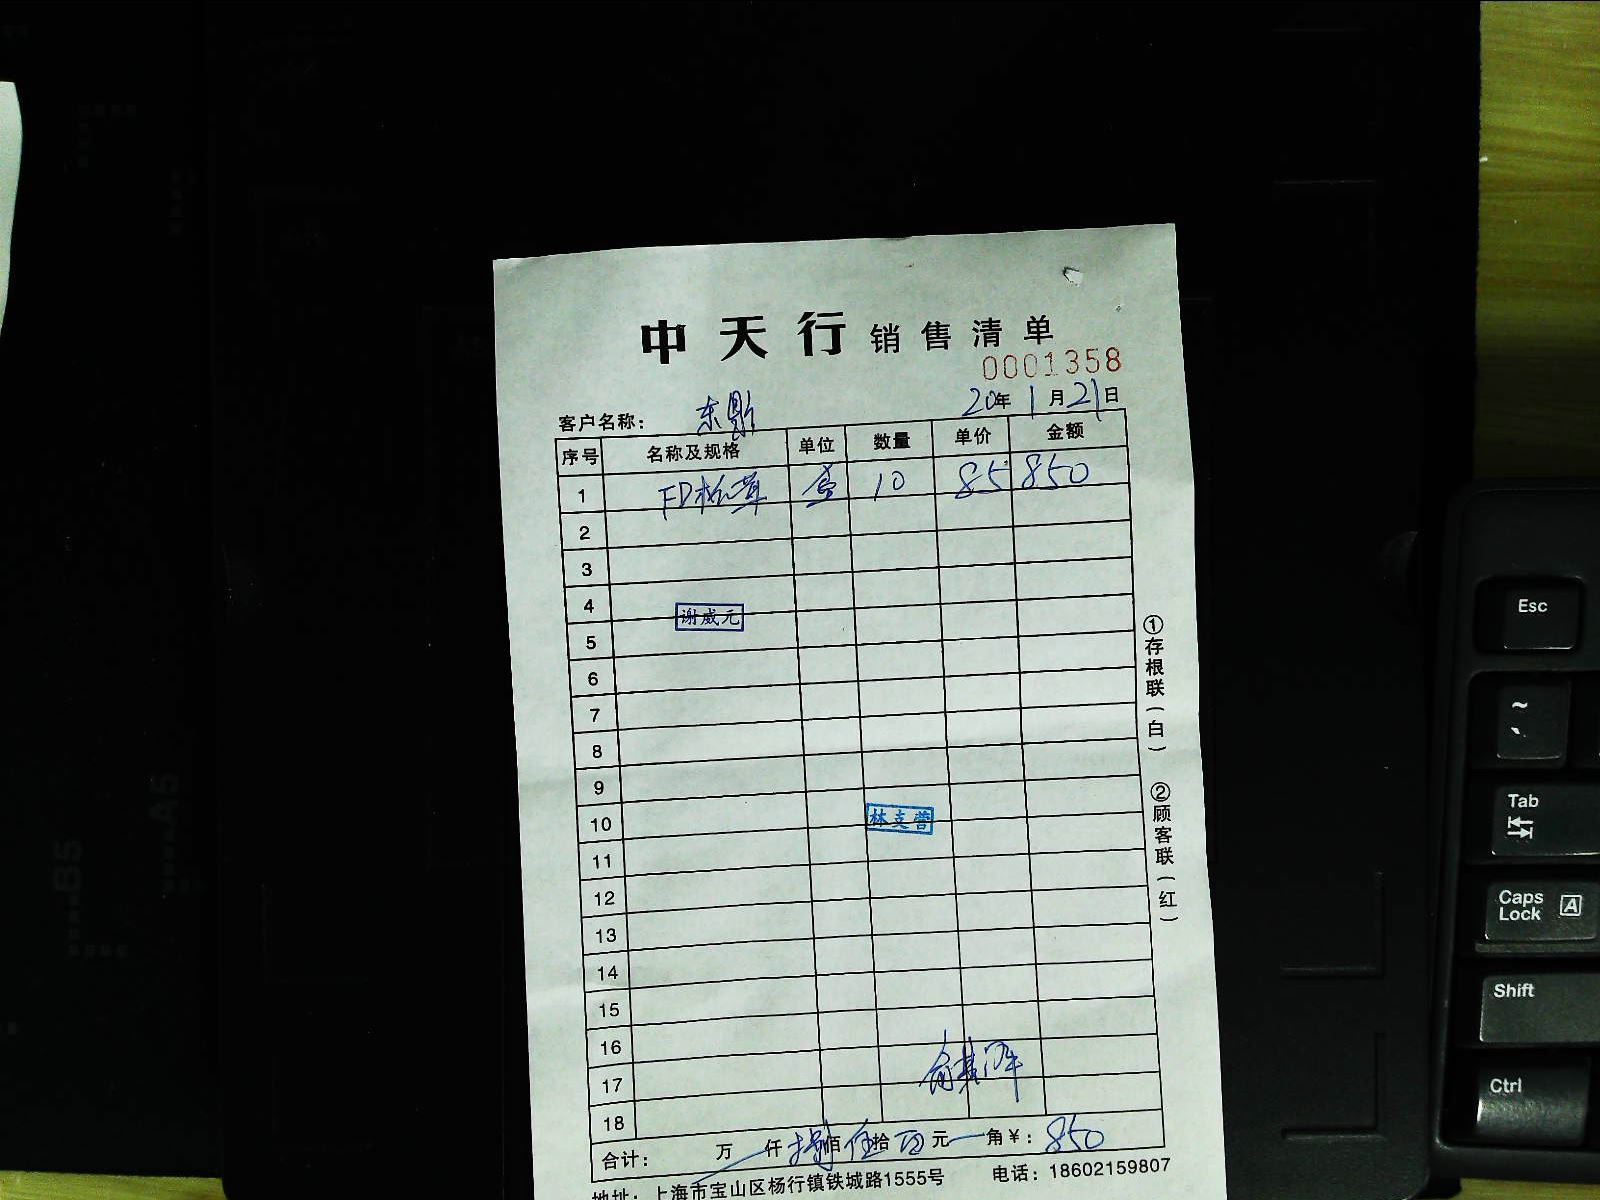 中天行 销售清单
0001358
客户名称： 20年1月21日
序号 名称及规格 单位 数量 单价 金额
1 FD松茸 盒 10 85 850
2
3
4
谢威元
5
6
7
8
9
10
林支营
11
12
13
14
15
16
17
18
合计： 万 仟 捌佰 伍拾 元 角 ¥：850
地址：上海市宝山区杨行镇铁城路1555号 电话：18602159807
①存根联（白） ②顾客联（红）
Esc
~
`
Tab
Caps Lock A
Shift
Ctrl
B5
A5